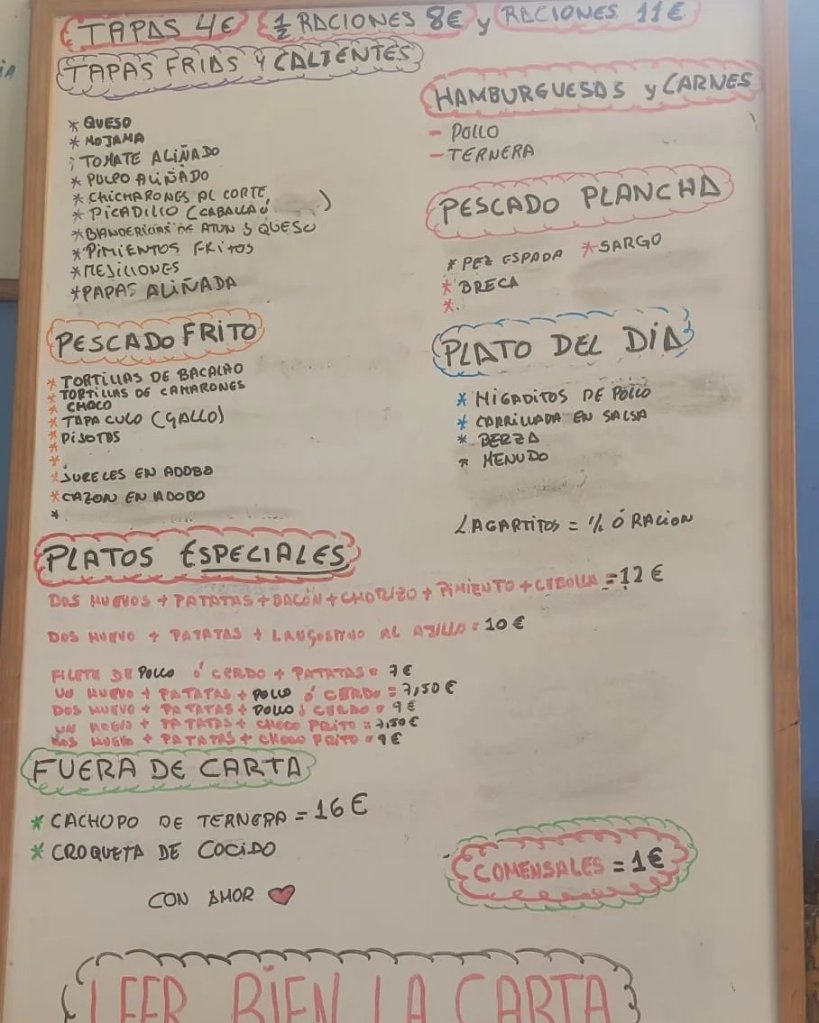 TAPAS 4€ ½ RACIONES 8€ y RACIONES 11€
TAPAS FRIAS Y CALIENTES
* QUESO
* MOJAMA
* TOMATE ALIÑADO
* PULPO ALIÑADO
* CHICHARONES AL CORTE
* PICADILLO (CABALLA Ó )
* BANDERILLAS DE ATUN Y QUESO
* PIMIENTOS FRITOS
* MEJILLONES
* PAPAS ALIÑADA
HAMBURGUESAS y CARNES
- POLLO
- TERNERA
PESCADO PLANCHA
* PEZ ESPADA * SARGO
* BRECA
*
PESCADO FRITO
* TORTILLAS DE BACALAO
* TORTILLAS DE CAMARONES
* CHOCO
* TAPA CULO (GALLO)
* PIJOTAS
*
*
* JURELES EN ADOBO
* CAZON EN ADOBO
*
PLATO DEL DIA
* HIGADITOS DE POLLO
* CARRILLADA EN SALSA
* BERZA
* MENUDO
LAGARTITOS = ½ Ó RACION
PLATOS ESPECIALES
DOS HUEVOS + PATATAS + BACÓN + CHORIZO + PIMIENTO + CEBOLLA = 12€
DOS HUEVO + PATATAS + LANGOSTINO AL AJILLO = 10€
FILETE DE POLLO Ó CERDO + PATATAS = 7€
UN HUEVO + PATATAS + POLLO Ó CERDO = 7,50€
DOS HUEVO + PATATAS + POLLO Ó CERDO = 9€
UN HUEVO + PATATAS + CHOCO FRITO = 7,50€
DOS HUEVO + PATATAS + CHOCO FRITO = 9€
FUERA DE CARTA
* CACHOPO DE TERNERA = 16€
* CROQUETA DE COCIDO
COMENSALES = 1€
CON AMOR ❤
LEER BIEN LA CARTA